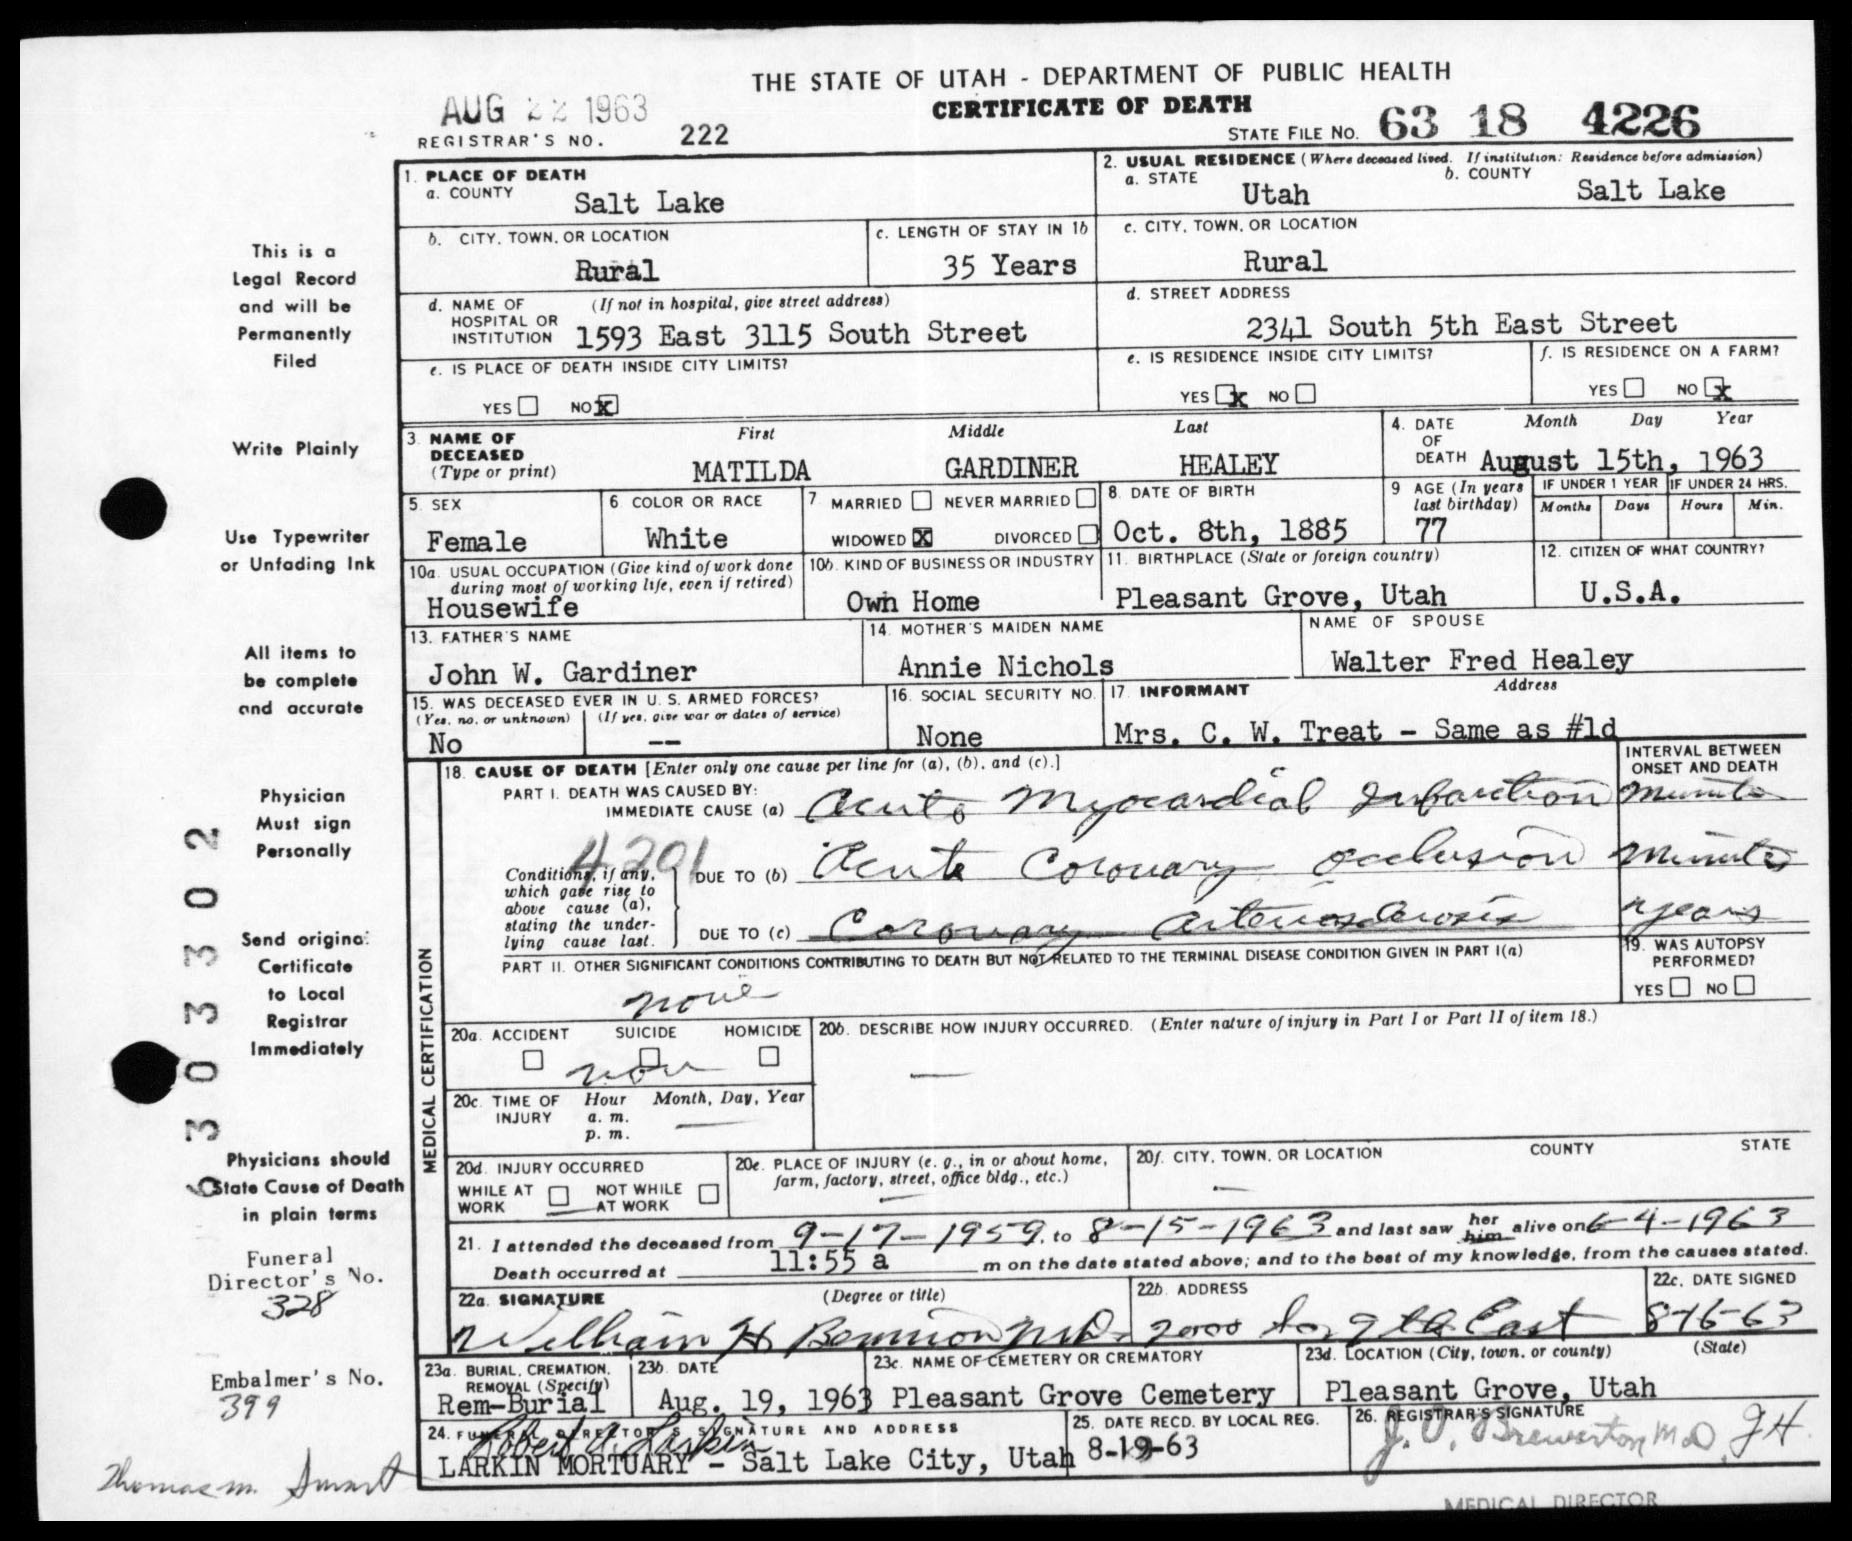 THE STATE OF UTAH - DEPARTMENT OF PUBLIC HEALTH
CERTIFICATE OF DEATH
AUG 22 1963
REGISTRAR'S NO. 222
STATE FILE NO. 63 18 4226
1. PLACE OF DEATH
a. COUNTY Salt Lake
2. USUAL RESIDENCE (Where deceased lived. If institution: Residence before admission)
a. STATE Utah b. COUNTY Salt Lake
b. CITY, TOWN, OR LOCATION Rural
c. LENGTH OF STAY IN 1b 35 Years
c. CITY, TOWN, OR LOCATION Rural
d. NAME OF HOSPITAL OR INSTITUTION (If not in hospital, give street address) 1593 East 3115 South Street
d. STREET ADDRESS 2341 South 5th East Street
e. IS PLACE OF DEATH INSIDE CITY LIMITS?
YES NO X
e. IS RESIDENCE INSIDE CITY LIMITS?
YES X NO
f. IS RESIDENCE ON A FARM?
YES NO X
3. NAME OF DECEASED (Type or print)
First Middle Last
MATILDA GARDINER HEALEY
4. DATE OF DEATH Month Day Year
August 15th, 1963
5. SEX Female
6. COLOR OR RACE White
7. MARRIED NEVER MARRIED
WIDOWED X DIVORCED
8. DATE OF BIRTH Oct. 8th, 1885
9 AGE (In years last birthday) 77
IF UNDER 1 YEAR Months Days
IF UNDER 24 HRS. Hours Min.
10a. USUAL OCCUPATION (Give kind of work done during most of working life, even if retired)
Housewife
10b. KIND OF BUSINESS OR INDUSTRY
Own Home
11. BIRTHPLACE (State or foreign country)
Pleasant Grove, Utah
12. CITIZEN OF WHAT COUNTRY?
U.S.A.
13. FATHER'S NAME
John W. Gardiner
14. MOTHER'S MAIDEN NAME
Annie Nichols
NAME OF SPOUSE
Walter Fred Healey
15. WAS DECEASED EVER IN U. S. ARMED FORCES?
(Yes, no, or unknown) (If yes, give war or dates of service)
No --
16. SOCIAL SECURITY NO.
None
17. INFORMANT Address
Mrs. C. W. Treat - Same as #1d
MEDICAL CERTIFICATION
18. CAUSE OF DEATH [Enter only one cause per line for (a), (b), and (c).]
INTERVAL BETWEEN ONSET AND DEATH
PART I. DEATH WAS CAUSED BY:
IMMEDIATE CAUSE (a) Acute Myocardial Infarction Minutes
4201
Conditions, if any, which gave rise to above cause (a), stating the underlying cause last.
DUE TO (b) Acute Coronary Occlusion Minutes
DUE TO (c) Coronary Arteriosclerosis years
PART II. OTHER SIGNIFICANT CONDITIONS CONTRIBUTING TO DEATH BUT NOT RELATED TO THE TERMINAL DISEASE CONDITION GIVEN IN PART I(a)
none
19. WAS AUTOPSY PERFORMED?
YES NO
20a. ACCIDENT SUICIDE HOMICIDE
20b. DESCRIBE HOW INJURY OCCURRED. (Enter nature of injury in Part I or Part II of item 18.)
—
20c. TIME OF INJURY Hour a. m. p. m. Month, Day, Year
—
20d. INJURY OCCURRED
WHILE AT WORK NOT WHILE AT WORK
20e. PLACE OF INJURY (e. g., in or about home, farm, factory, street, office bldg., etc.)
—
20f. CITY, TOWN, OR LOCATION COUNTY STATE
—
21. I attended the deceased from 9-17-1959, to 8-15-1963 and last saw her him alive on 6-4-1963
Death occurred at 11:55 a m on the date stated above; and to the best of my knowledge, from the causes stated.
22a. SIGNATURE (Degree or title)
William H Bennion MD
22b. ADDRESS
2000 So 9th East
22c. DATE SIGNED
8-16-63
23a. BURIAL, CREMATION, REMOVAL (Specify)
Rem-Burial
23b. DATE
Aug. 19, 1963
23c. NAME OF CEMETERY OR CREMATORY
Pleasant Grove Cemetery
23d. LOCATION (City, town, or county) (State)
Pleasant Grove, Utah
24. FUNERAL DIRECTOR'S SIGNATURE AND ADDRESS
Robert A. Larkin
LARKIN MORTUARY - Salt Lake City, Utah
25. DATE RECD. BY LOCAL REG.
8-19-63
26. REGISTRAR'S SIGNATURE
J. O. Brewerton MD JH
MEDICAL DIRECTOR
This is a
Legal Record
and will be
Permanently
Filed
Write Plainly
Use Typewriter
or Unfading Ink
All items to
be complete
and accurate
Physician
Must sign
Personally
Send original
Certificate
to Local
Registrar
Immediately
Physicians should
State Cause of Death
in plain terms
Funeral
Director's No.
328
Embalmer's No.
399